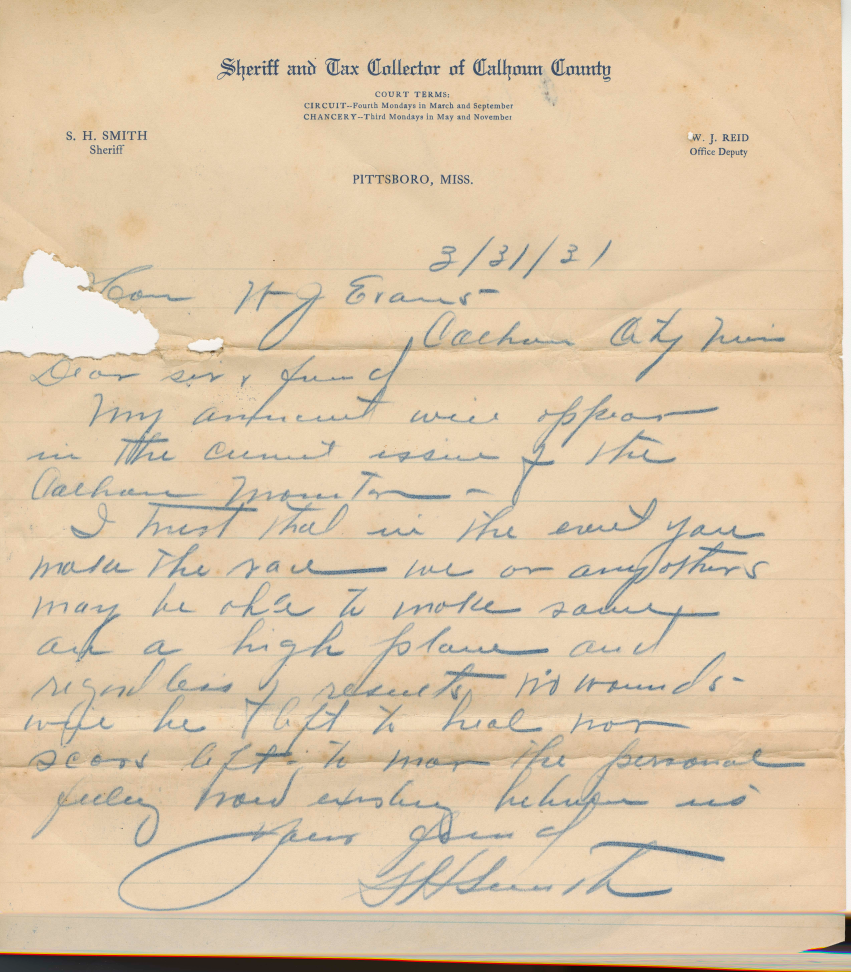 Sheriff and Tax Collector of Calhoun County
COURT TERMS:
CIRCUIT--Fourth Mondays in March and September
CHANCERY--Third Mondays in May and November
S. H. SMITH
Sheriff
W. J. REID
Office Deputy
PITTSBORO, MISS.
3/31/31
Hon W J Evans
Calhoun City Miss
Dear sir & friend
My will appear
in the current issue of the
Calhoun Monitor -
I trust that in the event you
make the race we or any others
may be able to make same
on a high plane and
regardless of results, no wounds
will be left to heal nor
scars left to mar the personal
feeling now existing between us
Your friend
S H Smith